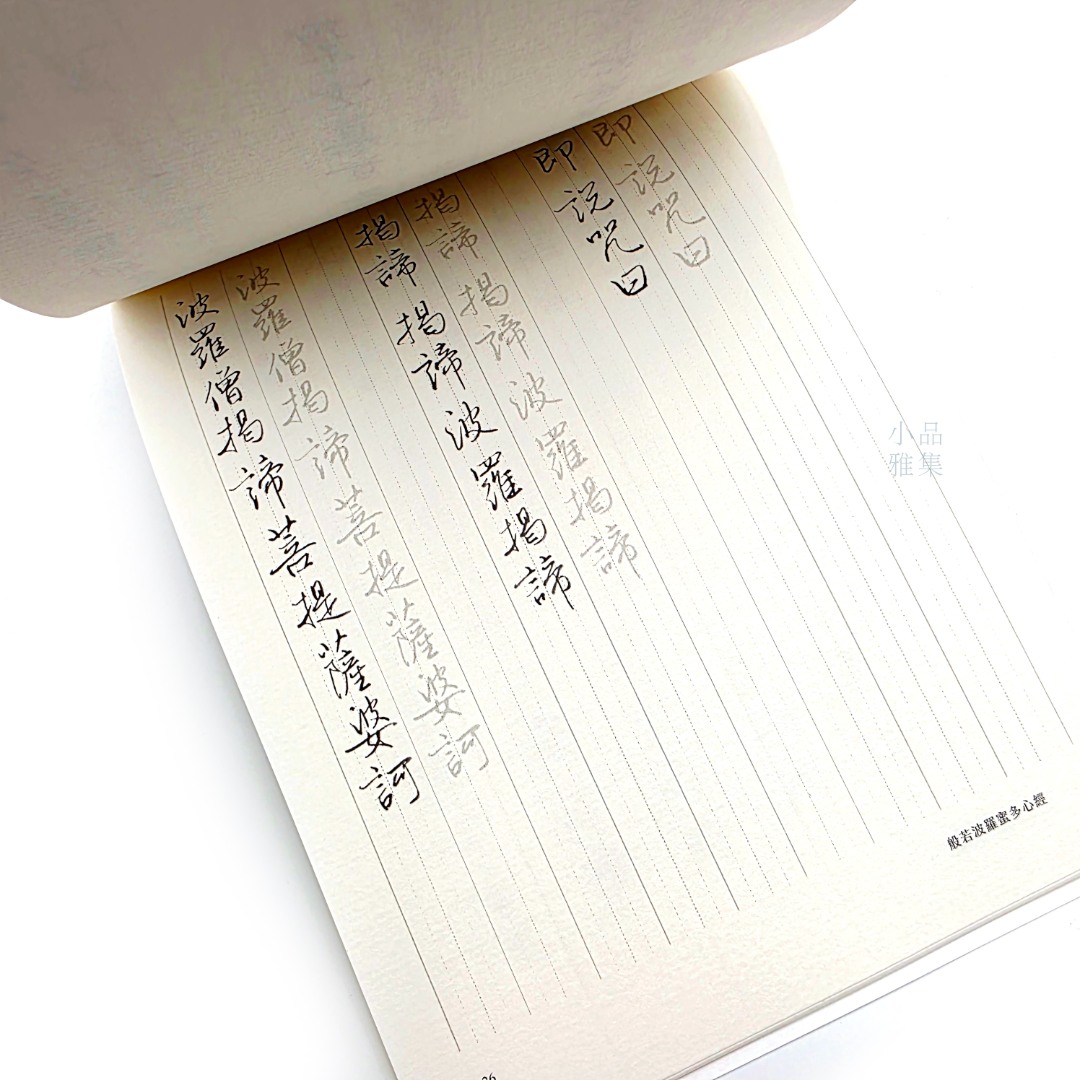 即說咒曰
即說咒曰
揭諦揭諦波羅揭諦
揭諦揭諦波羅揭諦
波羅僧揭諦菩提薩婆訶
波羅僧揭諦菩提薩婆訶
般若波羅蜜多心經
小品
雅集